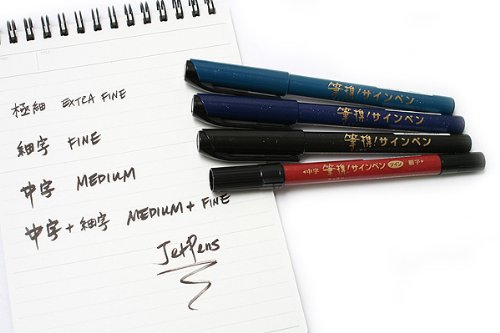 極細 EXTRA FINE
細字 FINE
中字 MEDIUM
中字+細字 MEDIUM + FINE
JetPens
サインペン
サインペン
サインペン
サインペン